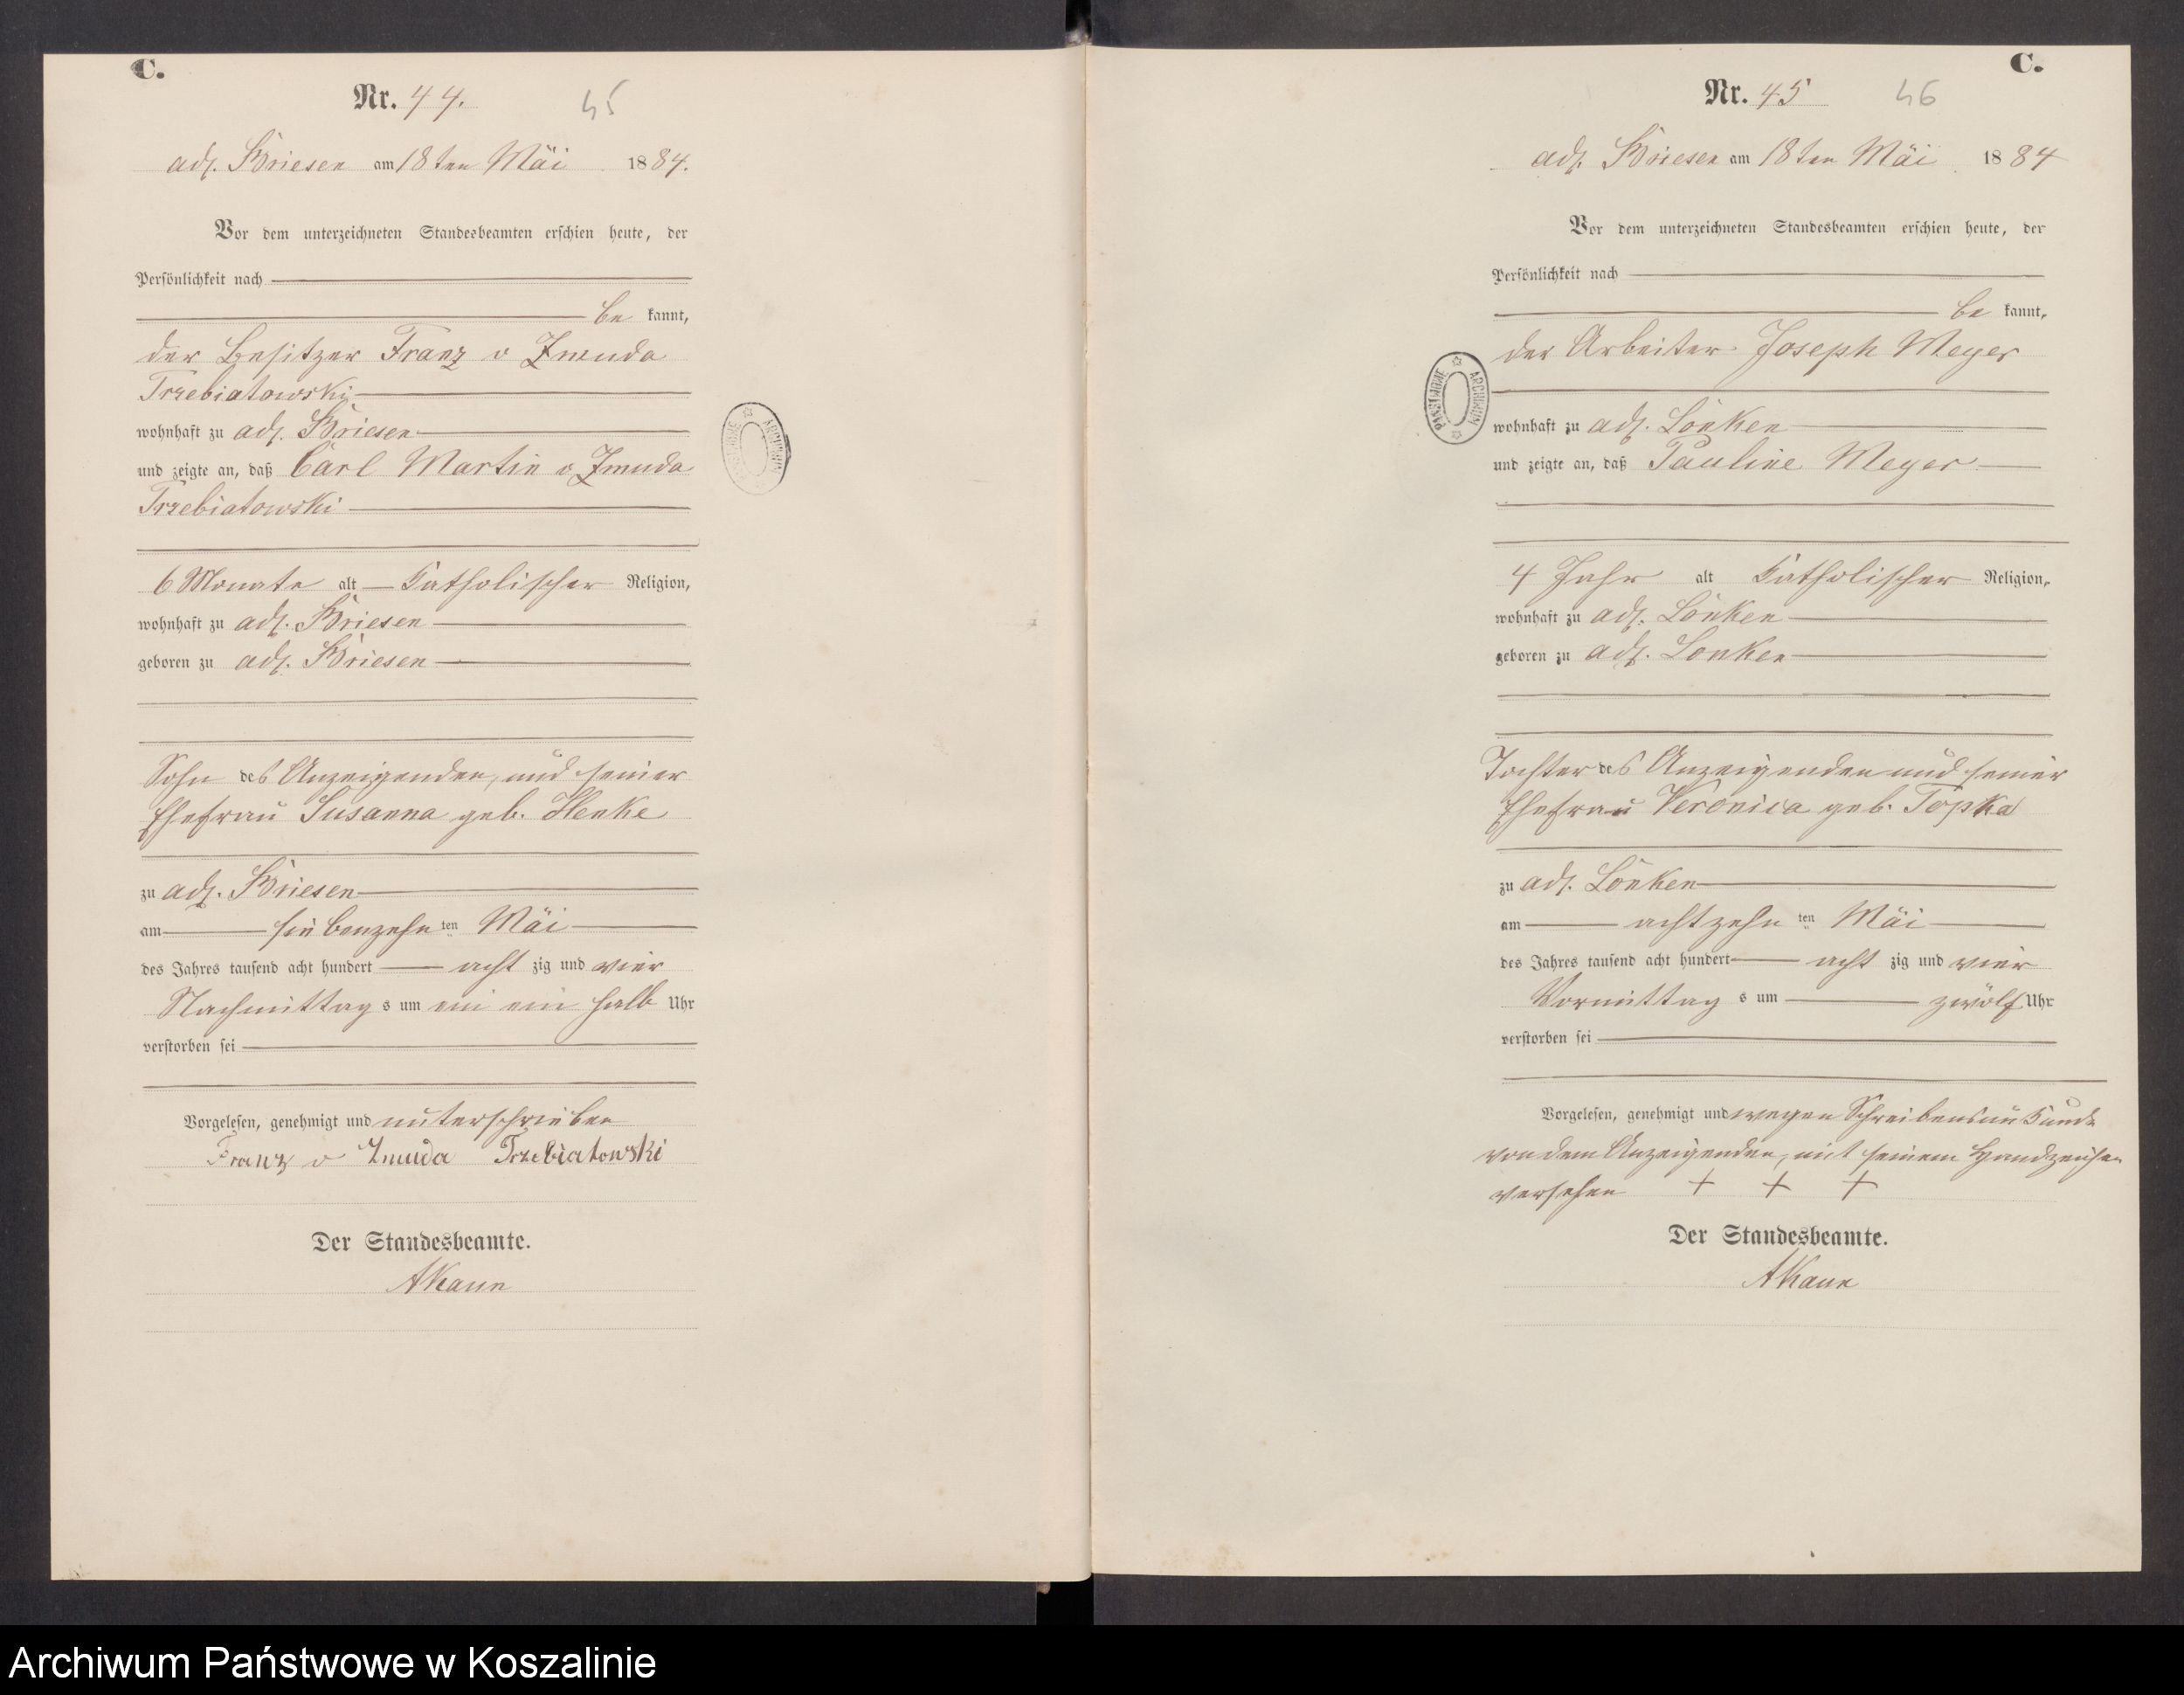 C.
Nr. 44.
45
adl. Briesen am 18ten Mai 1884.
Vor dem unterzeichneten Standesbeamten erschien heute, der
Persönlichkeit nach
be kannt,
der Besitzer Franz v Zmuda
Trzebiatowski
wohnhaft zu adl. Briesen
und zeigte an, daß Carl Martin v Zmuda
Trzebiatowski
6 Monate alt Katholischer Religion,
wohnhaft zu adl. Briesen
geboren zu adl. Briesen
Sohn des Anzeigenden, und seiner
Ehefrau Susanna geb.
zu adl. Briesen
am siebenzehn ten Mai
des Jahres tausend acht hundert acht zig und vier
Nachmittag s um ein halb Uhr
verstorben sei
Vorgelesen, genehmigt und unterschrieben
Franz v Zmuda Trzebiatowski
Der Standesbeamte.
AKaun
PAŃSTWOWE ARCHIWUM
C.
Nr. 45
46
adl. Briesen am 18ten Mai 1884
Vor dem unterzeichneten Standesbeamten erschien heute, der
Persönlichkeit nach
be kannt,
der Arbeiter Joseph Meyer
wohnhaft zu adl. Lonken
und zeigte an, daß Pauline Meyer
4 Jahr alt Katholischer Religion,
wohnhaft zu adl. Lonken
geboren zu adl. Lonken
Tochter des Anzeigenden und seiner
Ehefrau Veronica geb. Topka
zu adl. Lonken
am achtzehn ten Mai
des Jahres tausend acht hundert acht zig und vier
Vormittag s um zwölf Uhr
verstorben sei
Vorgelesen, genehmigt und wegen Schreibensunkunde
von dem Anzeigenden, mit seinem Handzeichen
versehen + + +
Der Standesbeamte.
AKaun
PAŃSTWOWE ARCHIWUM
Archiwum Państwowe w Koszalinie